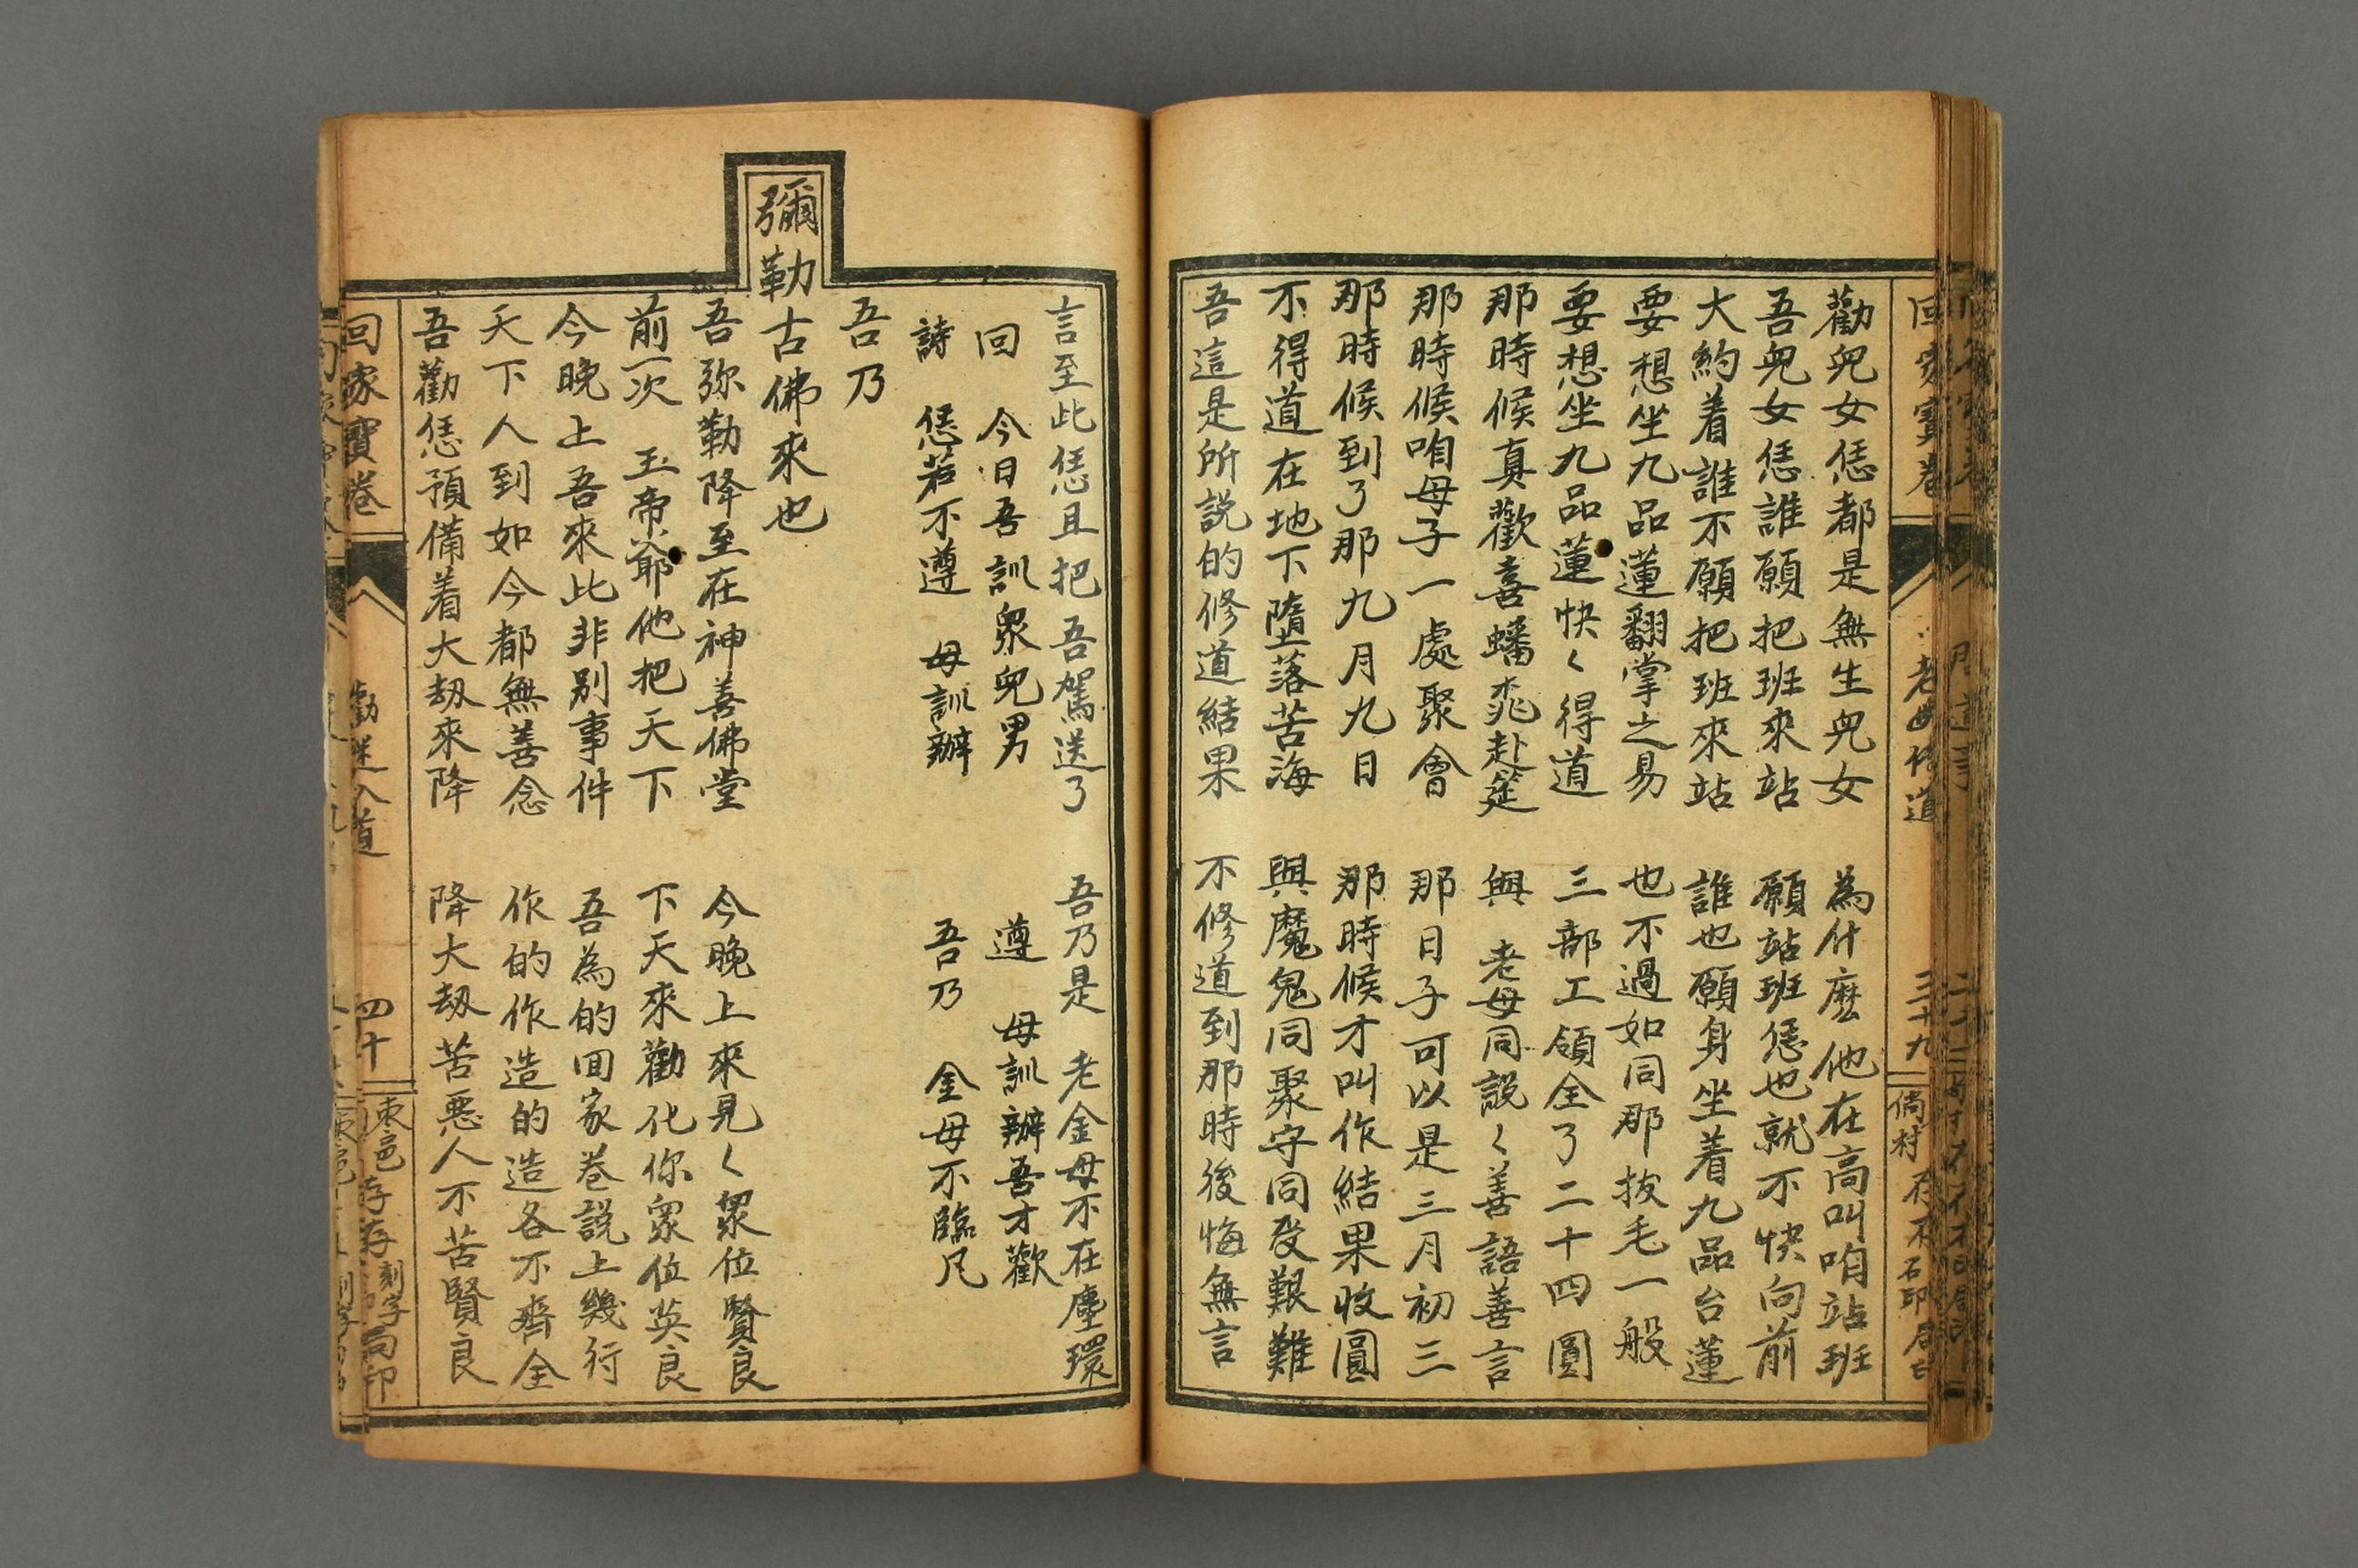 回家寶卷 老母傳道 三十九 倘村 石印局印
勸兒女恁都是無生兒女 為什麽他在高叫咱站班
吾兒女恁誰願把班來站 願站班恁也就不快向前
大約着誰不願把班來站 誰也願身坐着九品台蓮
要想坐九品蓮翻掌之易 也不過如同那拔毛一般
要想坐九品蓮快々得道 三部工領全了二十四圓
那時候真歡喜蟠桃赴筵 與 老母同說々善語善言
那時候咱母子一處聚會 那日子可以是三月初三
那時候到了那九月九日 那時候才叫作結果收圓
不得道在地下墮落苦海 與魔鬼同聚守同受艱難
吾這是所說的修道結果 不修道到那時後悔無言
言至此恁且把吾駕送了 吾乃是 老金母不在塵環
回 今日吾訓眾兒男 遵 母訓辦吾才歡
詩 恁若不遵 母訓辦 吾乃 金母不臨凡
吾乃
彌勒古佛來也
吾弥勒降至在神善佛堂 今晚上來見々眾位賢良
前一次 玉帝爺他把天下 下天來勸化你眾位英良
今晚上吾來此非別事件 吾為的回家卷說上幾行
天下人到如今都無善念 作的作造的造各不齊全
吾勸恁預備着大劫來降 降大劫苦惡人不苦賢良
回家寶卷 勸迷入道 四十 棗邑 存存刻字局印